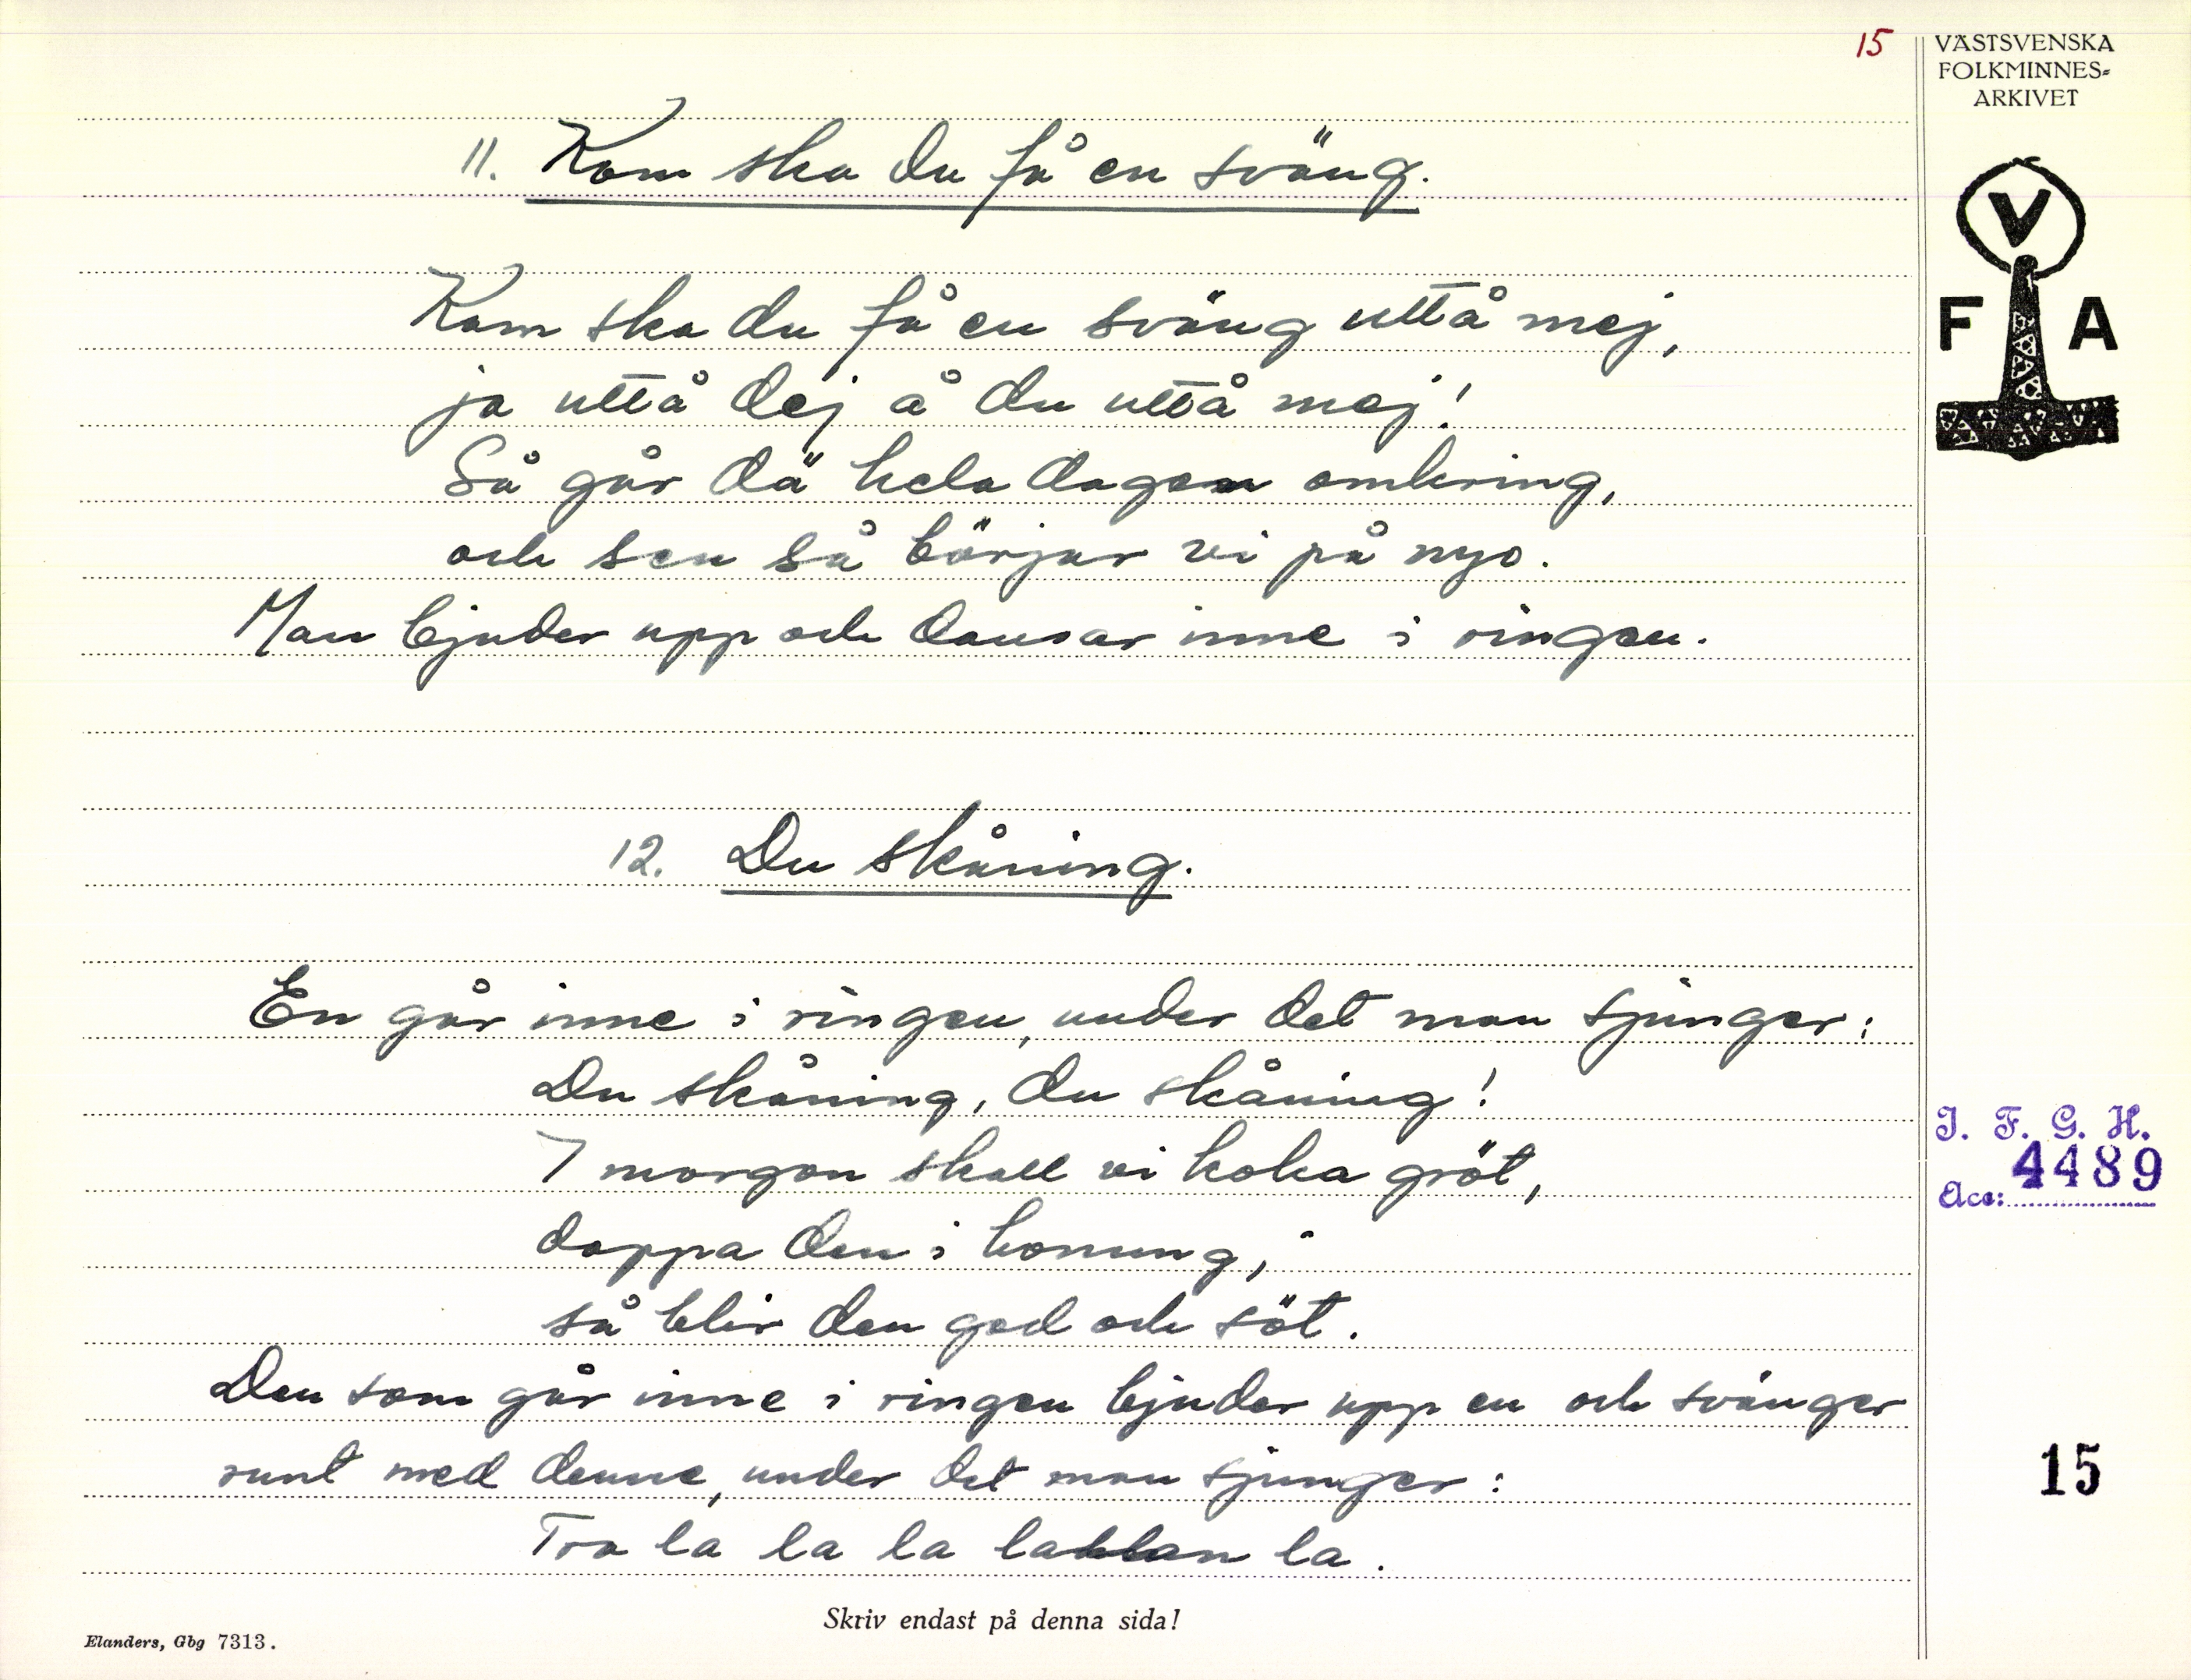 15
VÄSTSVENSKA
FOLKMINNES-
ARKIVET
V
F A
11. Kom ska du få en sväng.
Kom ska du få en sväng uttå mej,
ja uttå dej å du uttå mej!
Så går dä hela dagen omkring,
och sen så börjar vi på nyo.
Man bjuder upp och dansar inne i ringen.
12. Du skåning.
En går inne i ringen, under det man sjunger:
Du skåning, du skåning!
I morgon skall vi koka gröt,
doppa den i honung,
så blir den god och söt.
Den som går inne i ringen bjuder upp en och svänger
runt med denne, under det man sjunger:
Tra la la la la la.
I. F. G. H.
Acc: 4489
15
Skriv endast på denna sida!
Elanders, Gbg 7313.